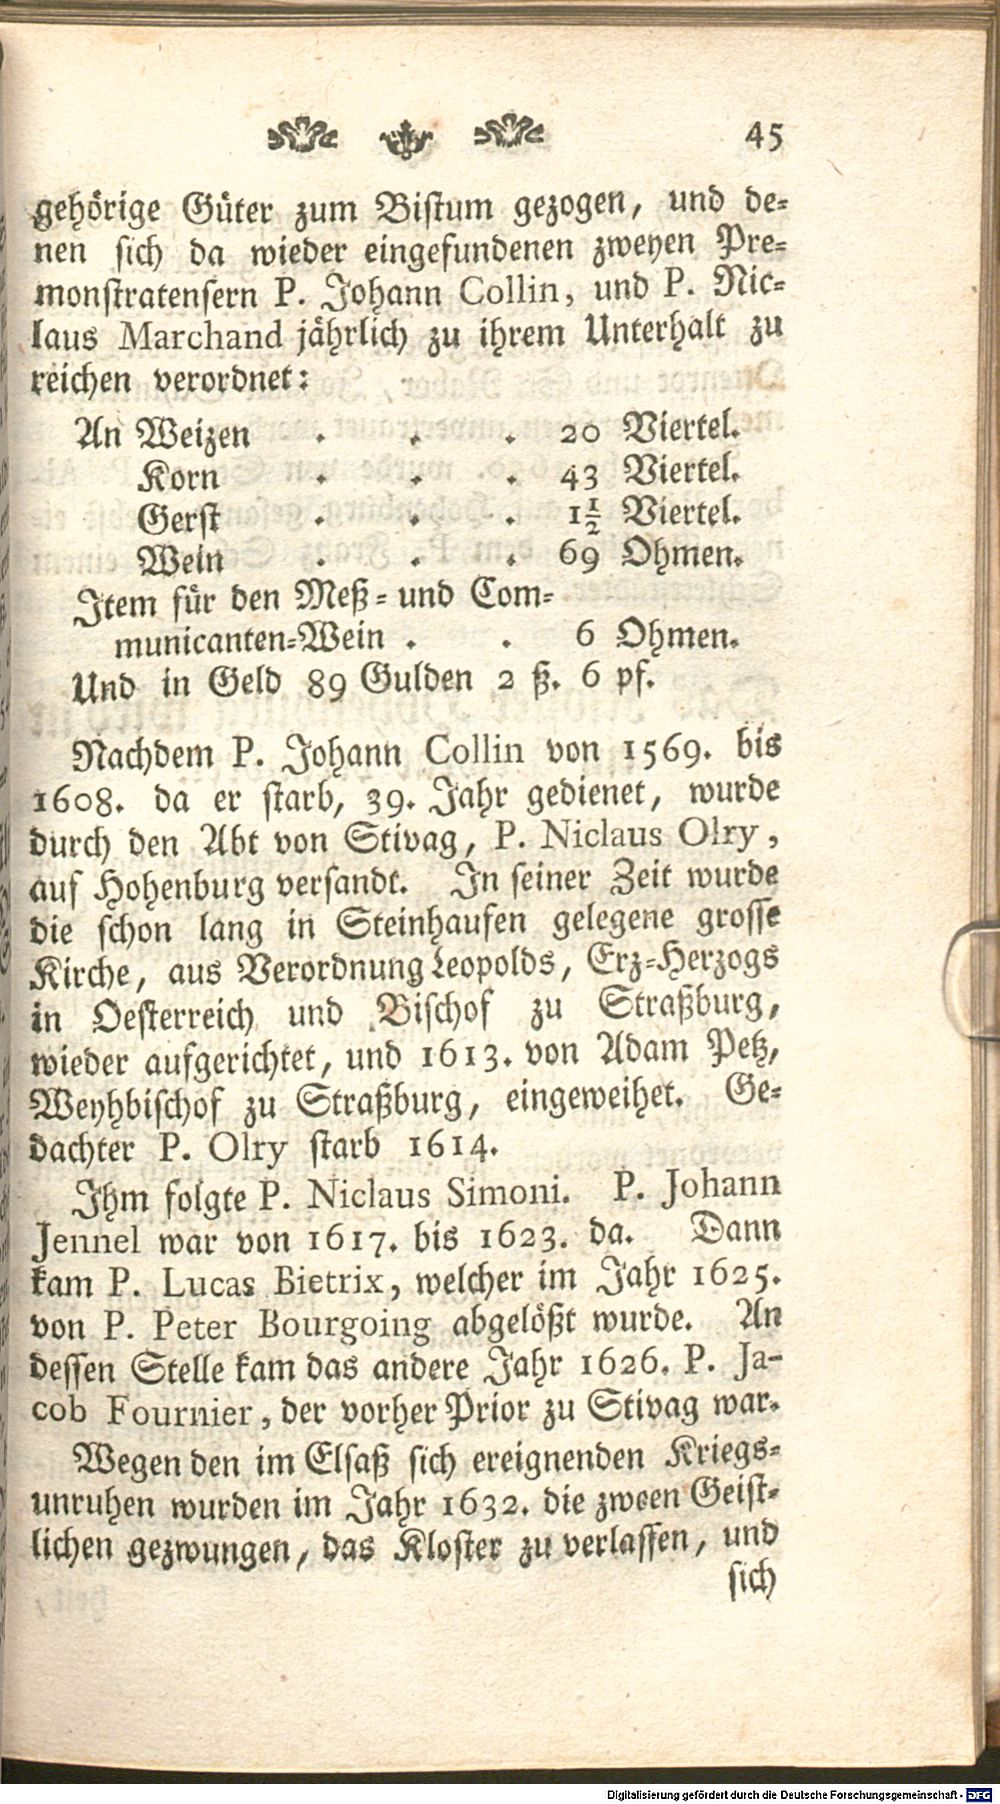 45
gehörige Güter zum Bistum gezogen, und de=
nen sich da wieder eingefundenen zweyen Pre=
monstratensern P. Johann Collin, und P. Nic=
laus Marchand jährlich zu ihrem Unterhalt zu
reichen verordnet:
An Weizen . . . 20 Viertel.
Korn . . . 43 Viertel.
Gerst . . . 1½ Viertel.
Wein . . . 69 Ohmen.
Item für den Meß= und Com=
municanten=Wein . . 6 Ohmen.
Und in Geld 89 Gulden 2 ß. 6 pf.
Nachdem P. Johann Collin von 1569. bis
1608. da er starb, 39. Jahr gedienet, wurde
durch den Abt von Stivag, P. Niclaus Olry,
auf Hohenburg versandt. In seiner Zeit wurde
die schon lang in Steinhaufen gelegene grosse
Kirche, aus Verordnung Leopolds, Erz=Herzogs
in Oesterreich und Bischof zu Straßburg,
wieder aufgerichtet, und 1613. von Adam Petz,
Weyhbischof zu Straßburg, eingeweihet. Ge=
dachter P. Olry starb 1614.
Ihm folgte P. Niclaus Simoni. P. Johann
Jennel war von 1617. bis 1623. da. Dann
kam P. Lucas Bietrix, welcher im Jahr 1625.
von P. Peter Bourgoing abgelößt wurde. An
dessen Stelle kam das andere Jahr 1626. P. Ja-
cob Fournier, der vorher Prior zu Stivag war.
Wegen den im Elsaß sich ereignenden Kriegs=
unruhen wurden im Jahr 1632. die zween Geist=
lichen gezwungen, das Kloster zu verlassen, und
sich
Digitalisierung gefördert durch die Deutsche Forschungsgemeinschaft - DFG